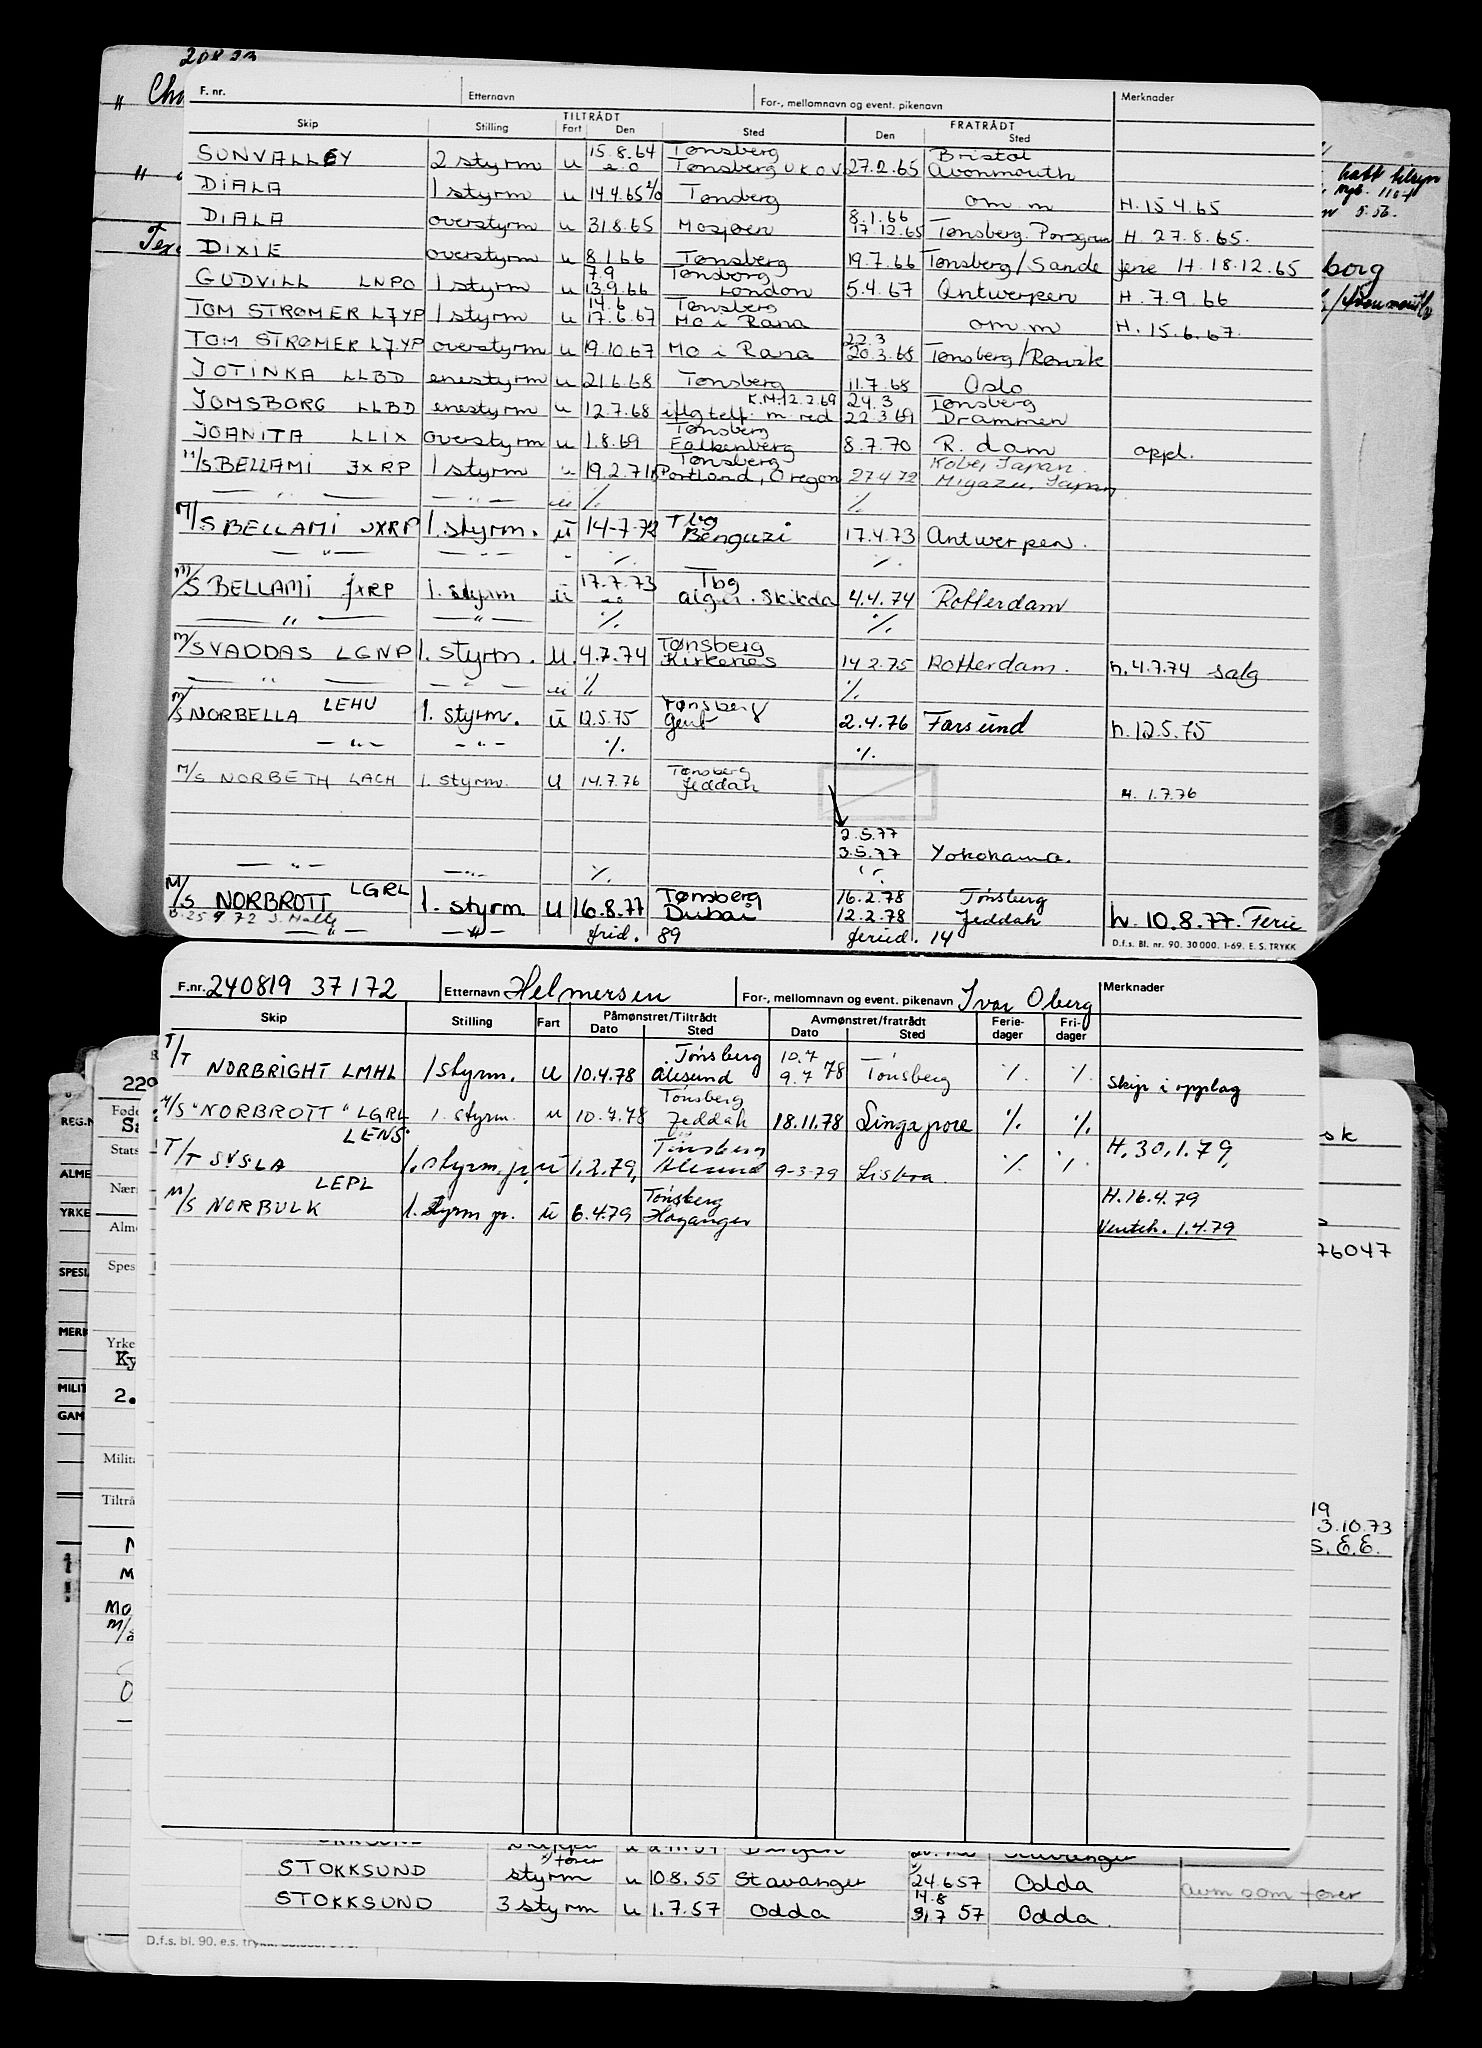 20823
F. nr. Etternavn For-, mellomnavn og event. pikenavn Merknader
TILTRÅDT FRATRÅDT
Skip Stilling Fart Den Sted Den Sted
15.8.64 Tønsberg Bristol
SUNVALLEY 2 styrm u e.o Tønsberg U K O V 27.2.65 Avonmouth
DIALA 1 styrm u 14.4.65 Tønsberg om.m H. 15.4.65
8.1.66
DIALA overstyrm u 31.8.65 Mosjøen 17.12.65 Tønsberg. Porsgrun H. 27.8.65.
DIXIE overstyrm u 8.1.66 Tønsberg 19.7.66 Tønsberg/Sande ferie H. 18.12.65
7.9 Tønsberg
GUDVILL LNPO 1 styrm u 13.9.66 London 5.4.67 Antwerpen H. 7.9.66
14.6 Tønsberg
TOM STRØMER LJYP 1 styrm u 17.6.67 Mo i Rana om.m H. 15.6.67.
22.3
TOM STRØMER LJYP overstyrm u 19.10.67 Mo i Rana 20.3.68 Tønsberg/Rørvik
JOTINKA LLBD enestyrm u 21.6.68 Tønsberg 11.7.68 Oslo
K.M. 12.2.69 24.3 Tønsberg
JOMSBORG LLBD enestyrm u 12.7.68 iflg telf. m. red 22.3.69 Drammen
Tønsberg
JOANITA LLIX overstyrm u 1.8.69 Falkenberg 8.7.70 R. dam oppl.
Tønsberg Kobe, Japan
M/S BELLAMI JXRP 1 styrm u 19.2.71 Portland, Oregon 27.4.72 Migazu, Japan
— " — ei % %
Tbg
M/S BELLAMI JXRP 1. styrm. ū 14-7-72 Benguzi 17.4.73 Antwerpen.
— " — — " — " % %
17.7.73 Tbg
M/S BELLAMI JXRP 1. styrm ū Skikda 4.4.74 Rotterdam
— " — — " — % %
Tønsberg
M/S VADDAS LGNP 1. styrm. u 4.7.74 Kirkenes 14.2.75 Rotterdam. h. 4.7.74 salg
— " — — " — % %
LEHU Tønsberg
M/S NORBELLA 1. styrm. ū 12.5.75 Gent 2.4.76 Farsund h. 12.5.75
— " — — " — % %
Tønsberg
M/S NORBETH LACH 1. styrm. u 14.7.76 Jeddah H. 1.7.76
2.5.77
3.5.77 Yokohama.
— " — — " — %
LGRL Tønsberg 16.2.78 Tønsberg
M/S NORBROTT 1. styrm u 16.8.77 Dubai 12.2.78 Jeddah h. 10.8.77. Ferie
— " — — " — frid. 89 feried. 14
D.f.s. Bl. nr. 90. 30 000. 1-69. E. S. TRYKK
F.nr. 240819 37172 Etternavn Helmersen For-, mellomnavn og event. pikenavn Ivar Oberg Merknader
Skip Stilling Fart Påmønstret/Tiltrådt Dato Sted Avmønstret/fratrådt Dato Sted Ferie-dager Fri-dager
Tønsberg 10.7
T/T NORBRIGHT LMHL 1 styrm. u 10.4.78 Ålesund 9.7 78 Tønsberg % % Skip i opplag
Tønsberg
M/S "NORBROTT" LGRL 1. styrm. u 10.7.78 Jeddah 18.11.78 Singapore % %
LENS Tønsberg
T/T SYSLA 1. styrm. jr. ū 1.2.79, Ålesund 9-3-79 Lisboa % % H. 30.1.79,
LEPL Tønsberg H. 16.4.79
M/S NORBULK 1. styrm jr. ū 6.4.79 Høyanger Venteh. 1.4.79
76047
3.10.73
S. E.E.
STOKKSUND styrm u 10.8.55 Stavanger 24.6 57 Odda avm som fører
14.8
STOKKSUND 3 styrm u 1.7.57 Odda 9.7 57 Odda
D.f.s. bl. 90. e.s. trykk.